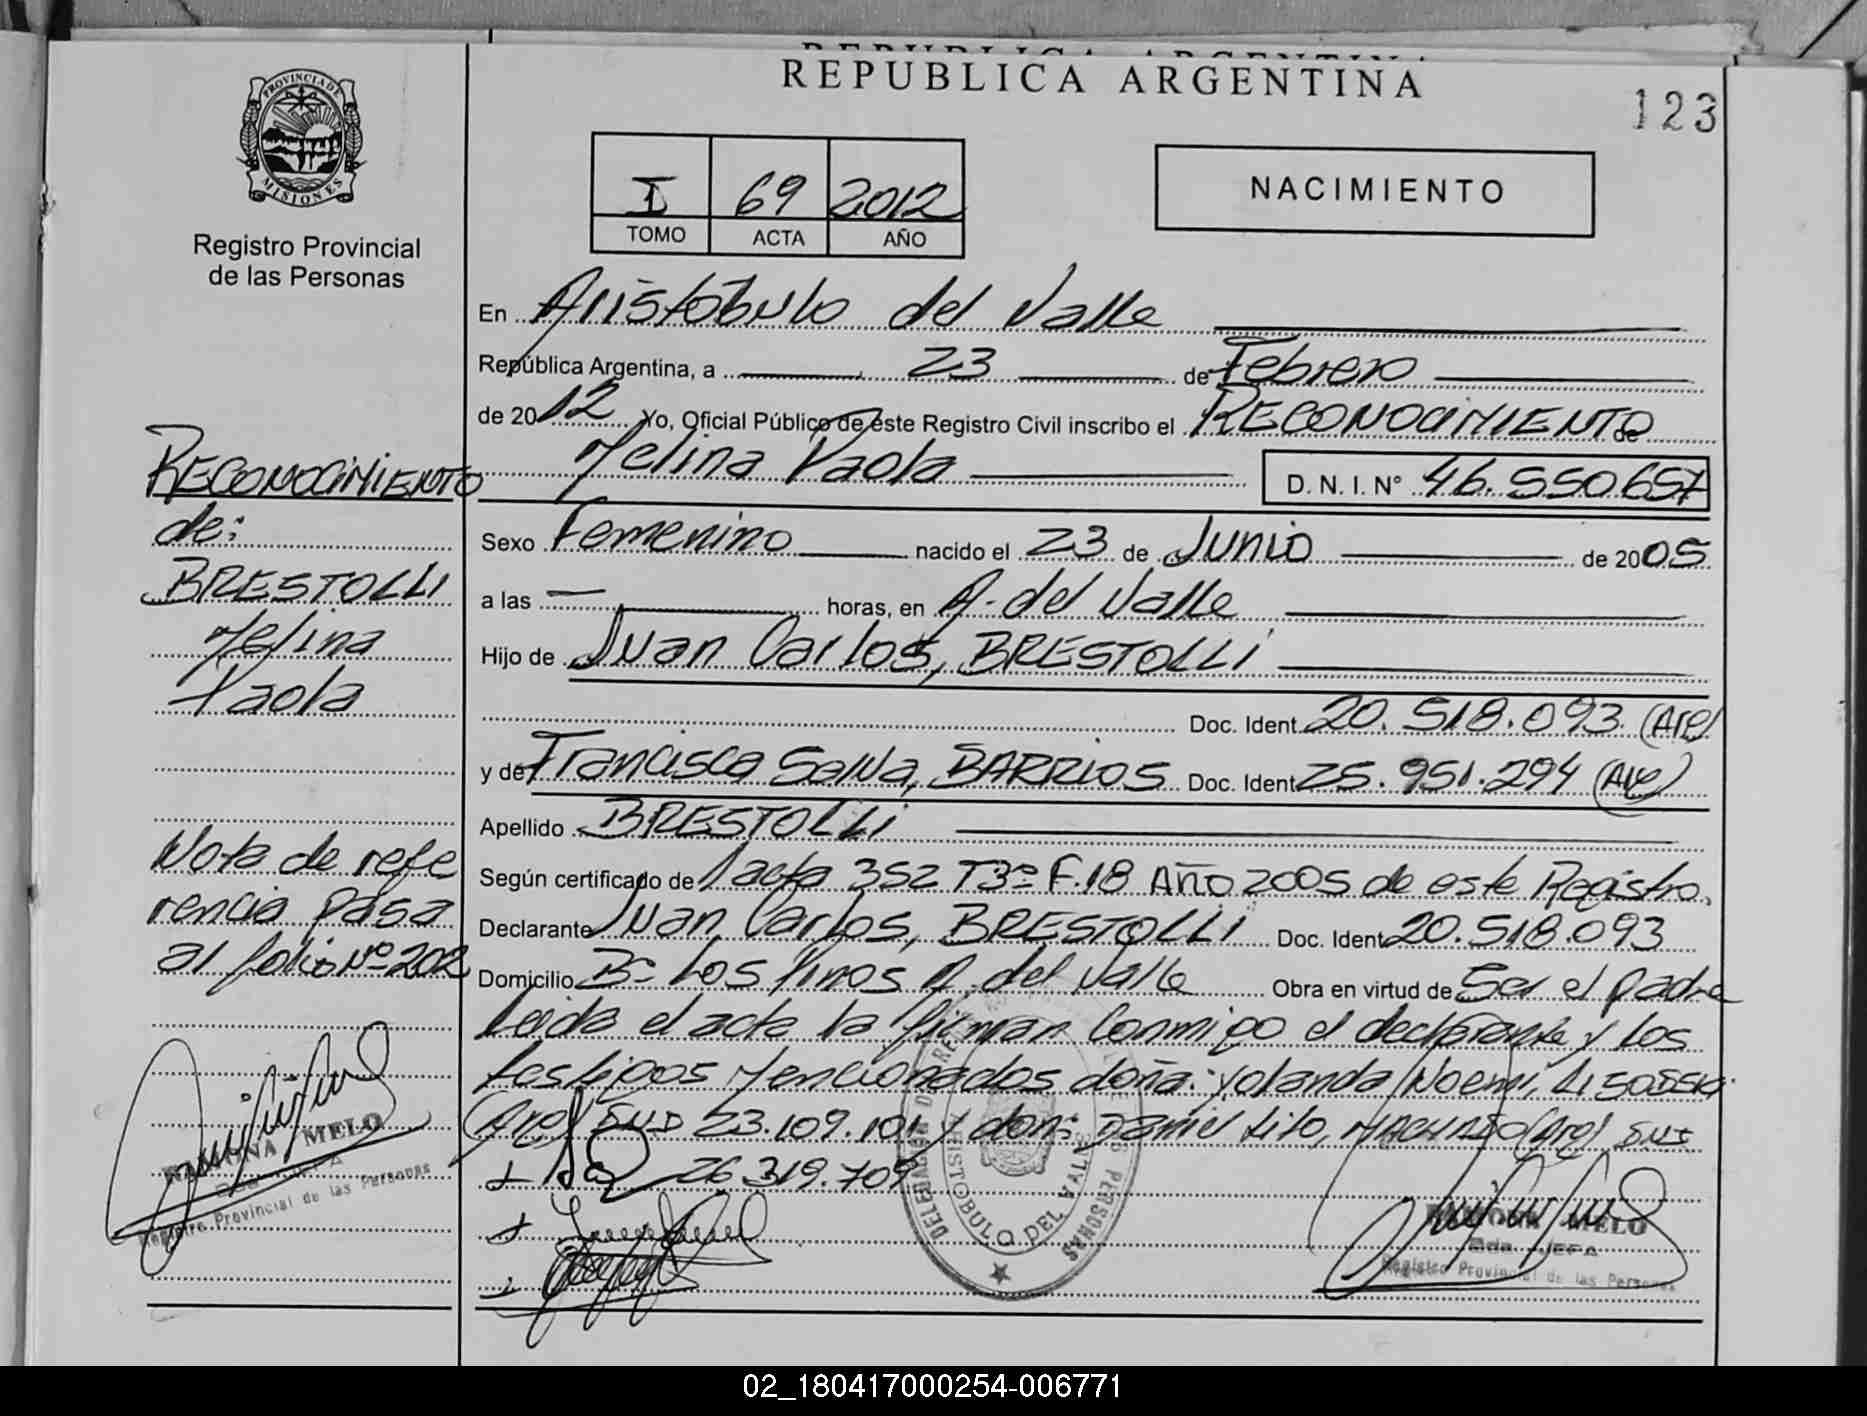 REPUBLICA ARGENTINA
123
PROVINCIA DE
MISIONES
Registro Provincial
de las Personas
I 69 2012
TOMO ACTA AÑO
NACIMIENTO
En Aristobulo del Valle
República Argentina, a 23 de Febrero
de 2012 Yo, Oficial Público de este Registro Civil inscribo el RECONOCIMIENTO de
Melina Paola D. N. I. N° 46.550.657
Sexo Femenino nacido el 23 de Junio de 2005
a las — horas, en A. del Valle
Hijo de Juan Carlos, BRESTOLLI
Doc. Ident. 20.518.093. (Arg)
y de Francisca Salva, BARRIOS Doc. Ident. 25.951.294 (Arg)
Apellido BRESTOLLI
Según certificado de Nacta 352 T3º F.18 Año 2005 de este Registro.
Declarante Juan Carlos, BRESTOLLI Doc. Ident. 20.518.093
Domicilio Bº Los Pinos A. del Valle Obra en virtud de Ser el padre
Leida el acta la firman Conmigo el declarante y los
testigos Mencionados doña: Yolanda Noemi,
(Arg) DNI 23.109.101 y don: Daniel Tito, (Arg) DNI
26.319.709
RECONOCIMIENTO
de:
BRESTOLLI
Melina
Paola
Nota de refe
rencia pasa
al folio Nº 202
RAMONA MELO
JEFA
Registro Provincial de las Personas
ARISTOBULO DEL VALLE
RAMONA MELO
JEFA
Registro Provincial de las Personas
02_180417000254-006771